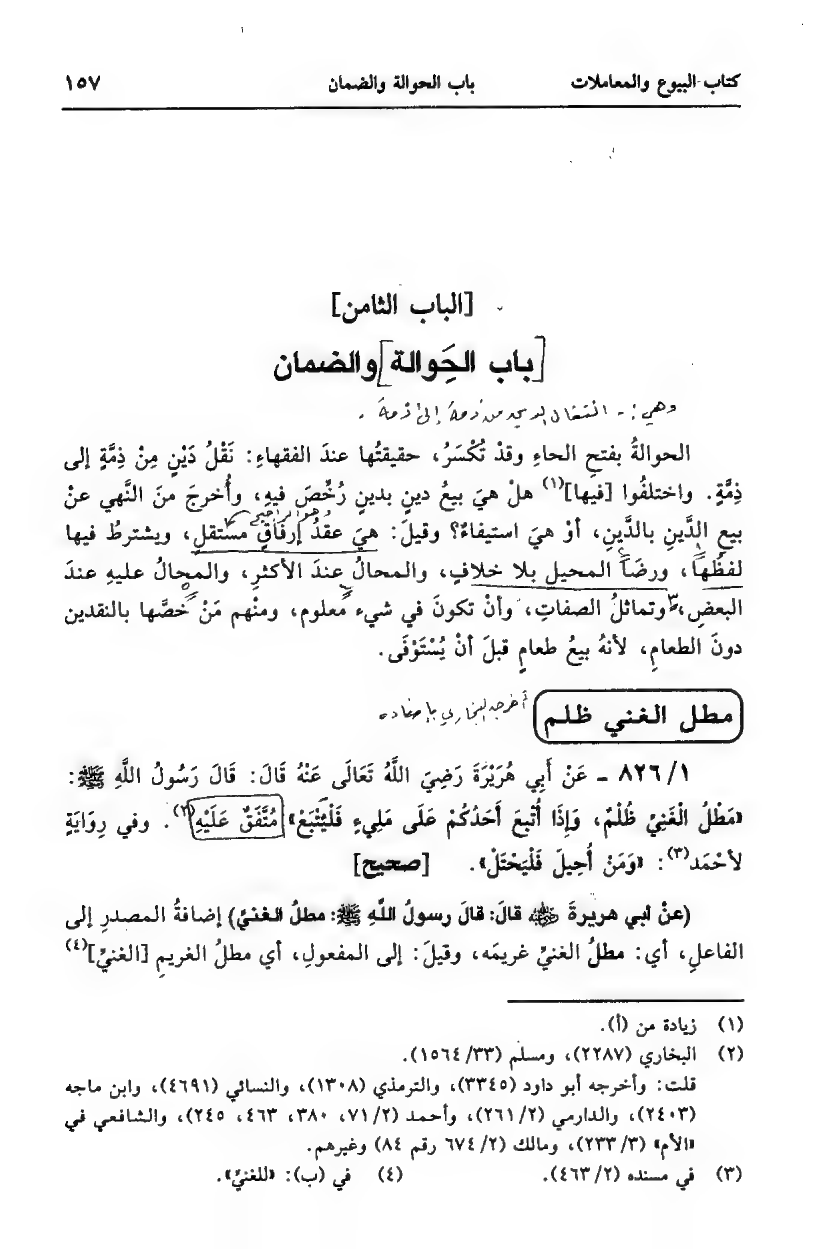 كتاب البيوع والمعاملات باب الحوالة والضمان ١٥٧
[الباب الثامن]
[باب الحَوالة] والضمان
وهي :- انتقال الدين من ذمة إلى ذمة .
الحوالةُ بفتحِ الحاءِ وقدْ تُكْسَرُ، حقيقتُها عندَ الفقهاءِ: نَقْلُ دَيْنٍ مِنْ ذِمَّةٍ إلى
ذِمَّةٍ. واختلفُوا [فيها](١) هلْ هيَ بيعُ دينٍ بدينٍ رُخِّصَ فيهِ، وأُخرجَ منَ النَّهي عنْ
بيعِ الدَّينِ بالدَّينِ، أوْ هيَ استيفاءٌ؟ وقيلَ: هيَ عقدُ إرفاقٍ مستقلٍ، ويشترطُ فيها
لفظُها، ورضَا المحيلِ بلا خلافٍ، والمحالُ عندَ الأكثرِ، والمحالُ عليهِ عندَ
البعضِ، وتماثلُ الصفاتِ، وأنْ تكونَ في شيء معلوم، ومنْهم مَنْ خصَّها بالنقدين
دونَ الطعامِ، لأنهُ بيعُ طعامٍ قبلَ أنْ يُسْتَوْفَى.
مطل الغني ظلم أخرجه البخاري
١/ ٨٢٦ ـ عَنْ أَبِي هُرَيْرَةَ رَضِيَ اللَّهُ تَعَالَى عَنْهُ قَالَ: قَالَ رَسُولُ اللَّهِ ﷺ:
«مَطْلُ الْغَنِيِّ ظُلْمٌ، وَإِذَا أُتْبِعَ أَحَدُكُمْ عَلَى مَلِيءٍ فَلْيَتْبَعْ» مُتَّفَقٌ عَلَيْهِ(٢). وفي رِوَايَةٍ
لأَحْمَد(٣): «وَمَنْ أُحِيلَ فَلْيَحْتَلْ». [صحيح]
(عنْ أبي هريرةَ ﷺ قالَ: قالَ رسولُ اللَّهِ ﷺ: مطلُ الغنيِّ) إضافةُ المصدرِ إلى
الفاعلِ، أي: مطلُ الغنيِّ غريمَه، وقيلَ: إلى المفعولِ، أي مطلُ الغريمِ [الغنيِّ](٤)
(١) زيادة من (أ).
(٢) البخاري (٢٢٨٧)، ومسلم (٣٣/ ١٥٦٤).
قلت: وأخرجه أبو داود (٣٣٤٥)، والترمذي (١٣٠٨)، والنسائي (٤٦٩١)، وابن ماجه
(٢٤٠٣)، والدارمي (٢/ ٢٦١)، وأحمد (٢/ ٧١، ٣٨٠، ٤٦٣، ٢٤٥)، والشافعي في
«الأم» (٣/ ٢٣٣)، ومالك (٢/ ٦٧٤ رقم ٨٤) وغيرهم.
(٣) في مسنده (٢/ ٤٦٣). (٤) في (ب): «للغنيِّ».